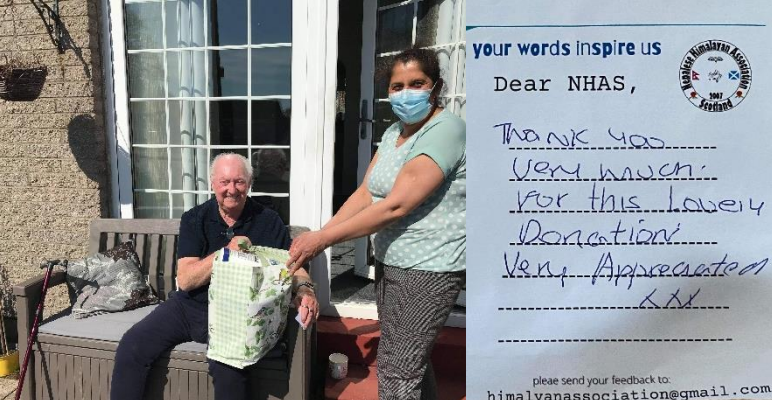 your words inspire us
Nepalese Himalayan Association
2007
Scotland
Dear NHAS,
Thank you
Very much.
For this Lovely
Donation
Very Appreciated
xxx
please send your feedback to:
himalyanassociation@gmail.com